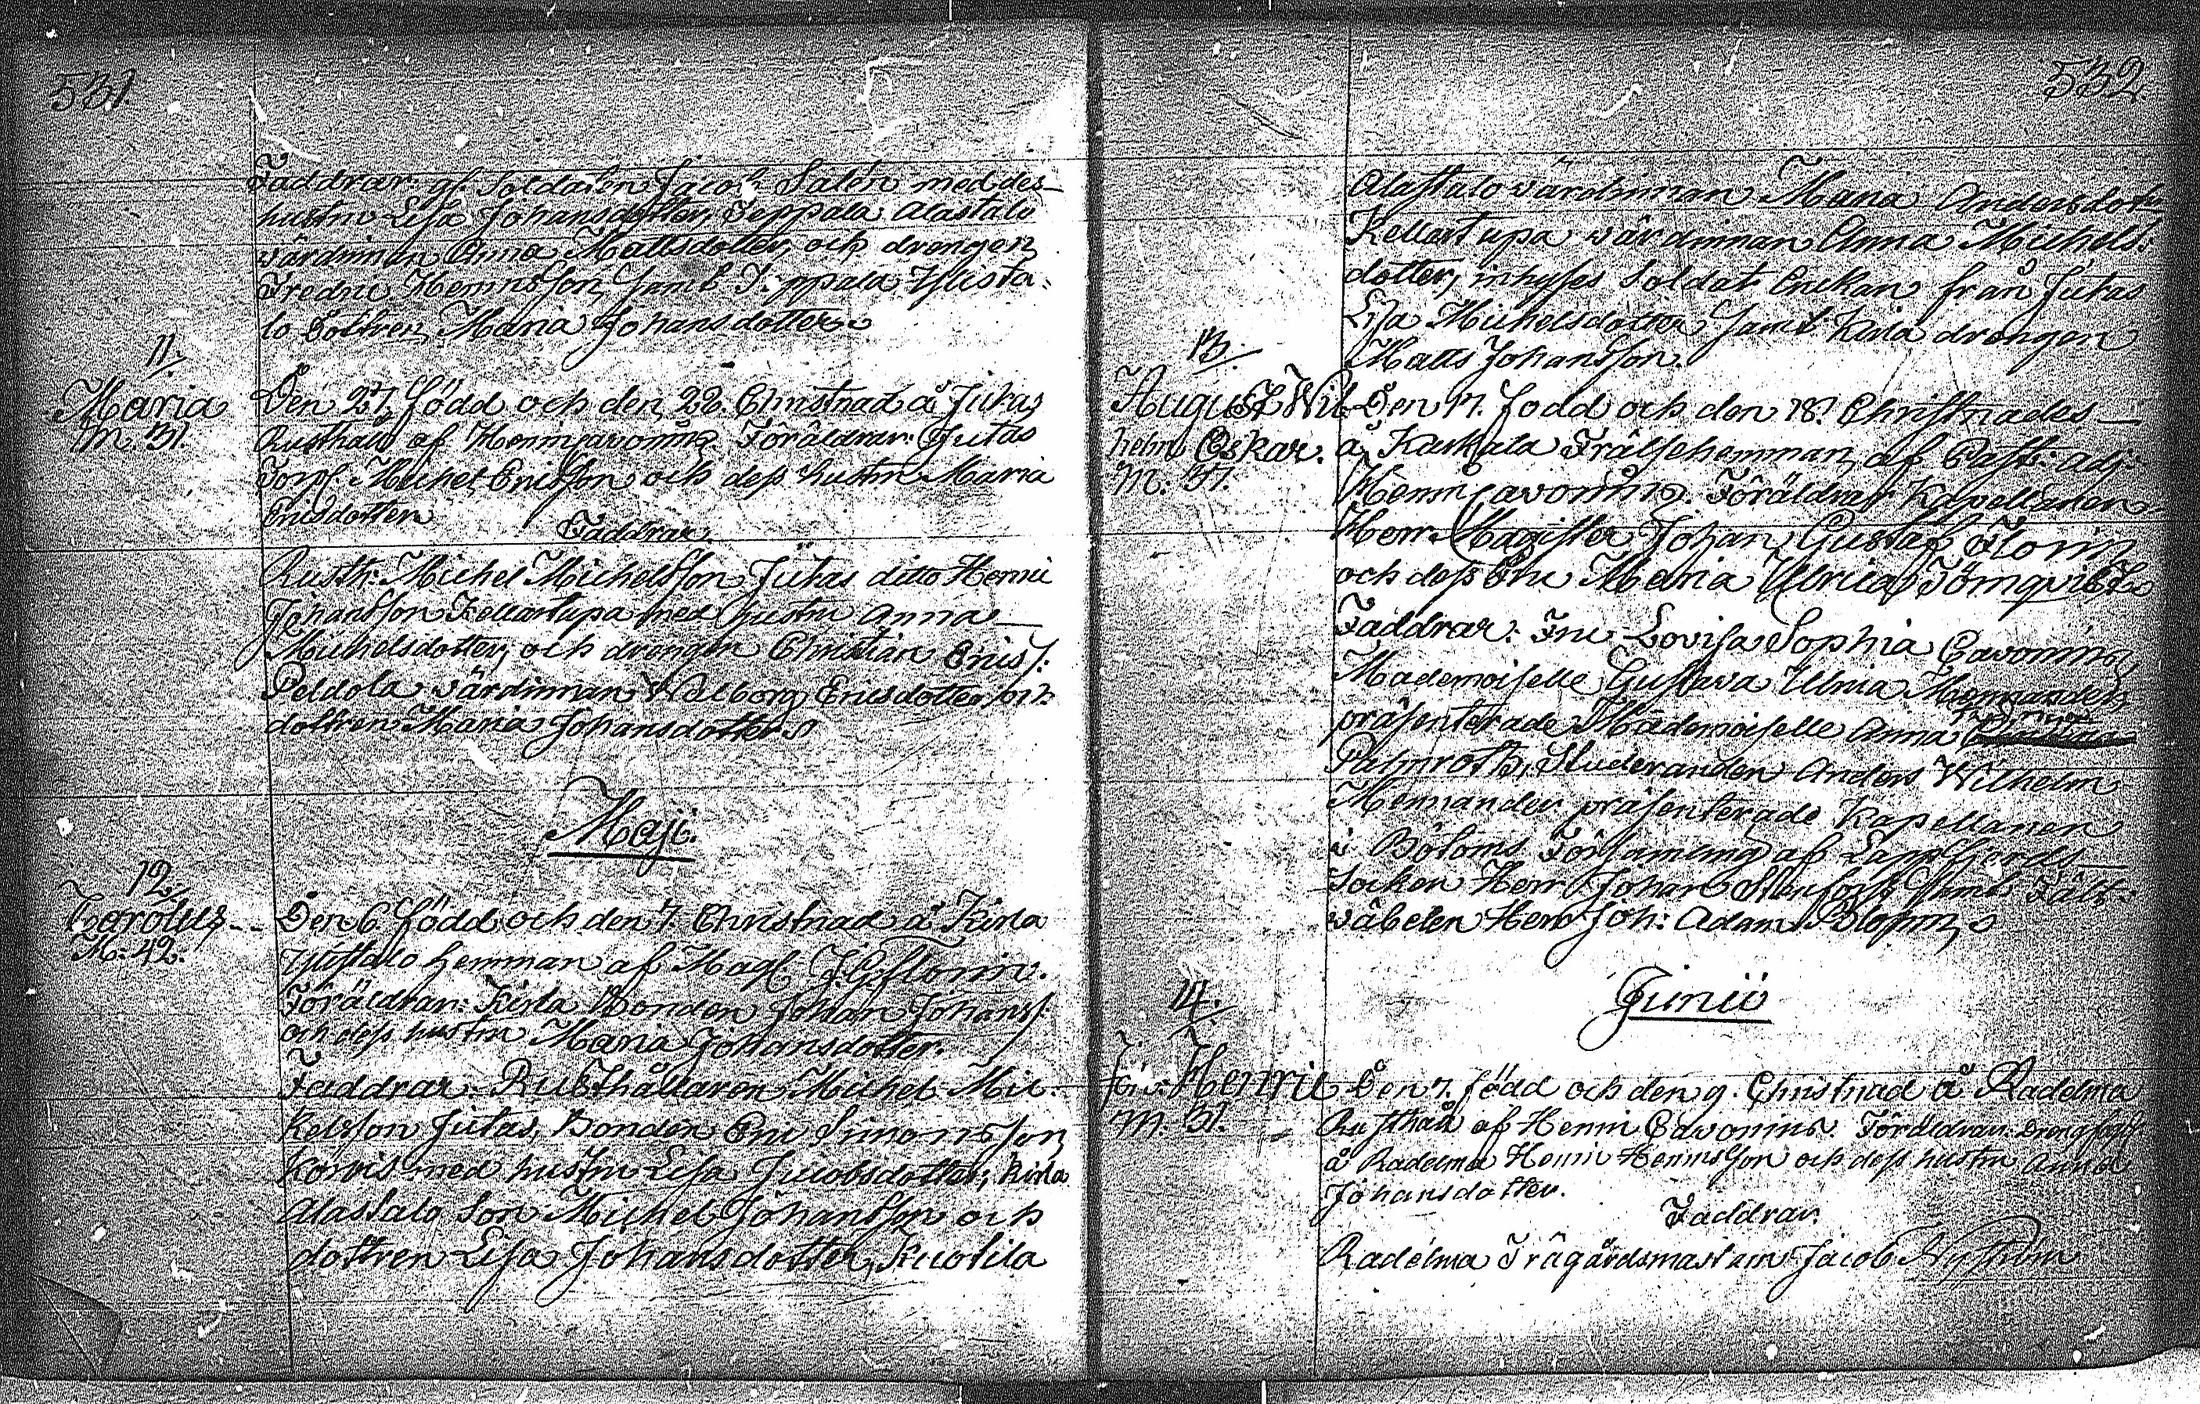 531.
Faddrar: gl. Soldaten Jacob Salén med des
hustru Lisa Johansdotter, Seppala Alastalo
värdinnan Anna Mattsdotter, och drengen
Fredric Henricsson, samt Seppala Ylista-
lo dottren Maria Johansdotter
11.
Maria
M. 31.
Den 27. född och den 28. Christnad å Jutas
Rusthåll af Henric Cavonius. Föräldrar: Jutas
Torp. Michel Ericsson och dess hustru Maria
Ericsdotter
Faddrar.
Rusth: Michel Michelsson Jutas ditto Henric
Johansson Kellartupa med hustru Anna
Michelsdotter, och drengen Christian Erics:
Peldola värdinnan Walborg Ericsdotter och
dottren Maria Johansdotter
Maji.
12.
Carolus
M: 42.
Den 6. född och den 7. Christnad å Kirla
Ylistalo hemman af Mag. J. G. Florin.
Föräldrar: Kirla Bonden Johan Johanss:
och dess hustru Maria Johansdotter.
Faddrar: Rusthållaren Michel Mic-
kelsson Jutas, Bonden Eric Simonsson
Korvis med hustru Lisa Jacobsdotter, Kirla
Alastalo Son Michel Johansson och
dottren Lisa Johansdotter, Kuotila
532.
Alastalo värdinnan Maria Andersdotter
Kellartupa värdinnan Anna Michels-
dotter, inhyses Soldat Enckan från Jutas
Lisa Michelsdotter samt Kirla drengen
Matts Johansson.
13.
August Wil-
helm Oskar.
M: 37.
Den 17. född och den 18. Christnades
å Kaskala Frälsehemman, af Past: adj:
Henric Cavonius. Föräldrar Kapellanen
Herr Magister Johan Gustaf Florin
och dess Fru Maria Ulrica Törnqvist
Faddrar: Fru Lovisa Sophia Cavonius,
Mademoiselle Gustava Ulrica Mennander
präsenterade Mademoiselle Anna
Palmroth, Studeranden Anders Wilhelm
Mennander präsenterade Kapellanen
i Bötoms Församling af Lappfjerds
Socken Herr Johan Stenfors samt Fält-
väbelen Herr Joh: Adam Blom
Junii
14.
Henric
M. 31.
Den 7. född och den 9. Christnad å Radelma
Rusthåll af Henric Cavonius. Föräldrar: Drengfogd
å Radelma Henric Henricsson och dess hustru Anna
Johansdotter.
Faddrar.
Radelma Trägårdsmastaren Jacob Nyström